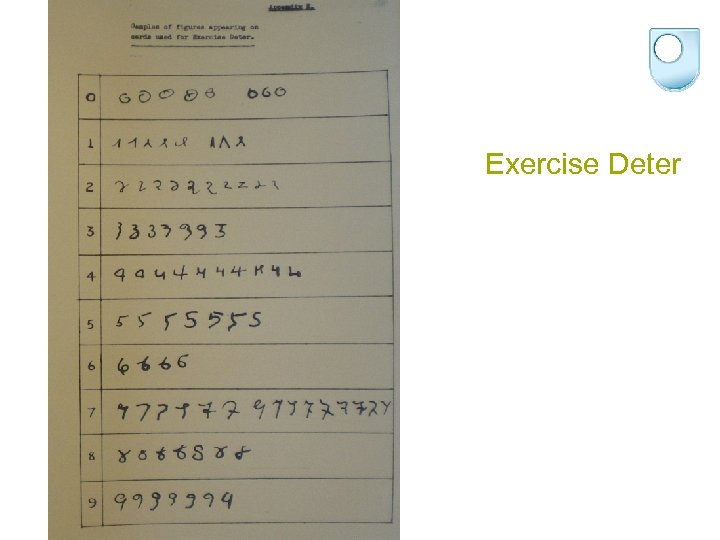 Appendix E.
Samples of figures appearing on
cards used for Exercise Deter.
Exercise Deter
0 00000 000
1 11111 111
2 2222222222
3 3333333
4 4444444444
5 5555555
6 6666
7 777777 7777777777
8 8888888
9 9999999